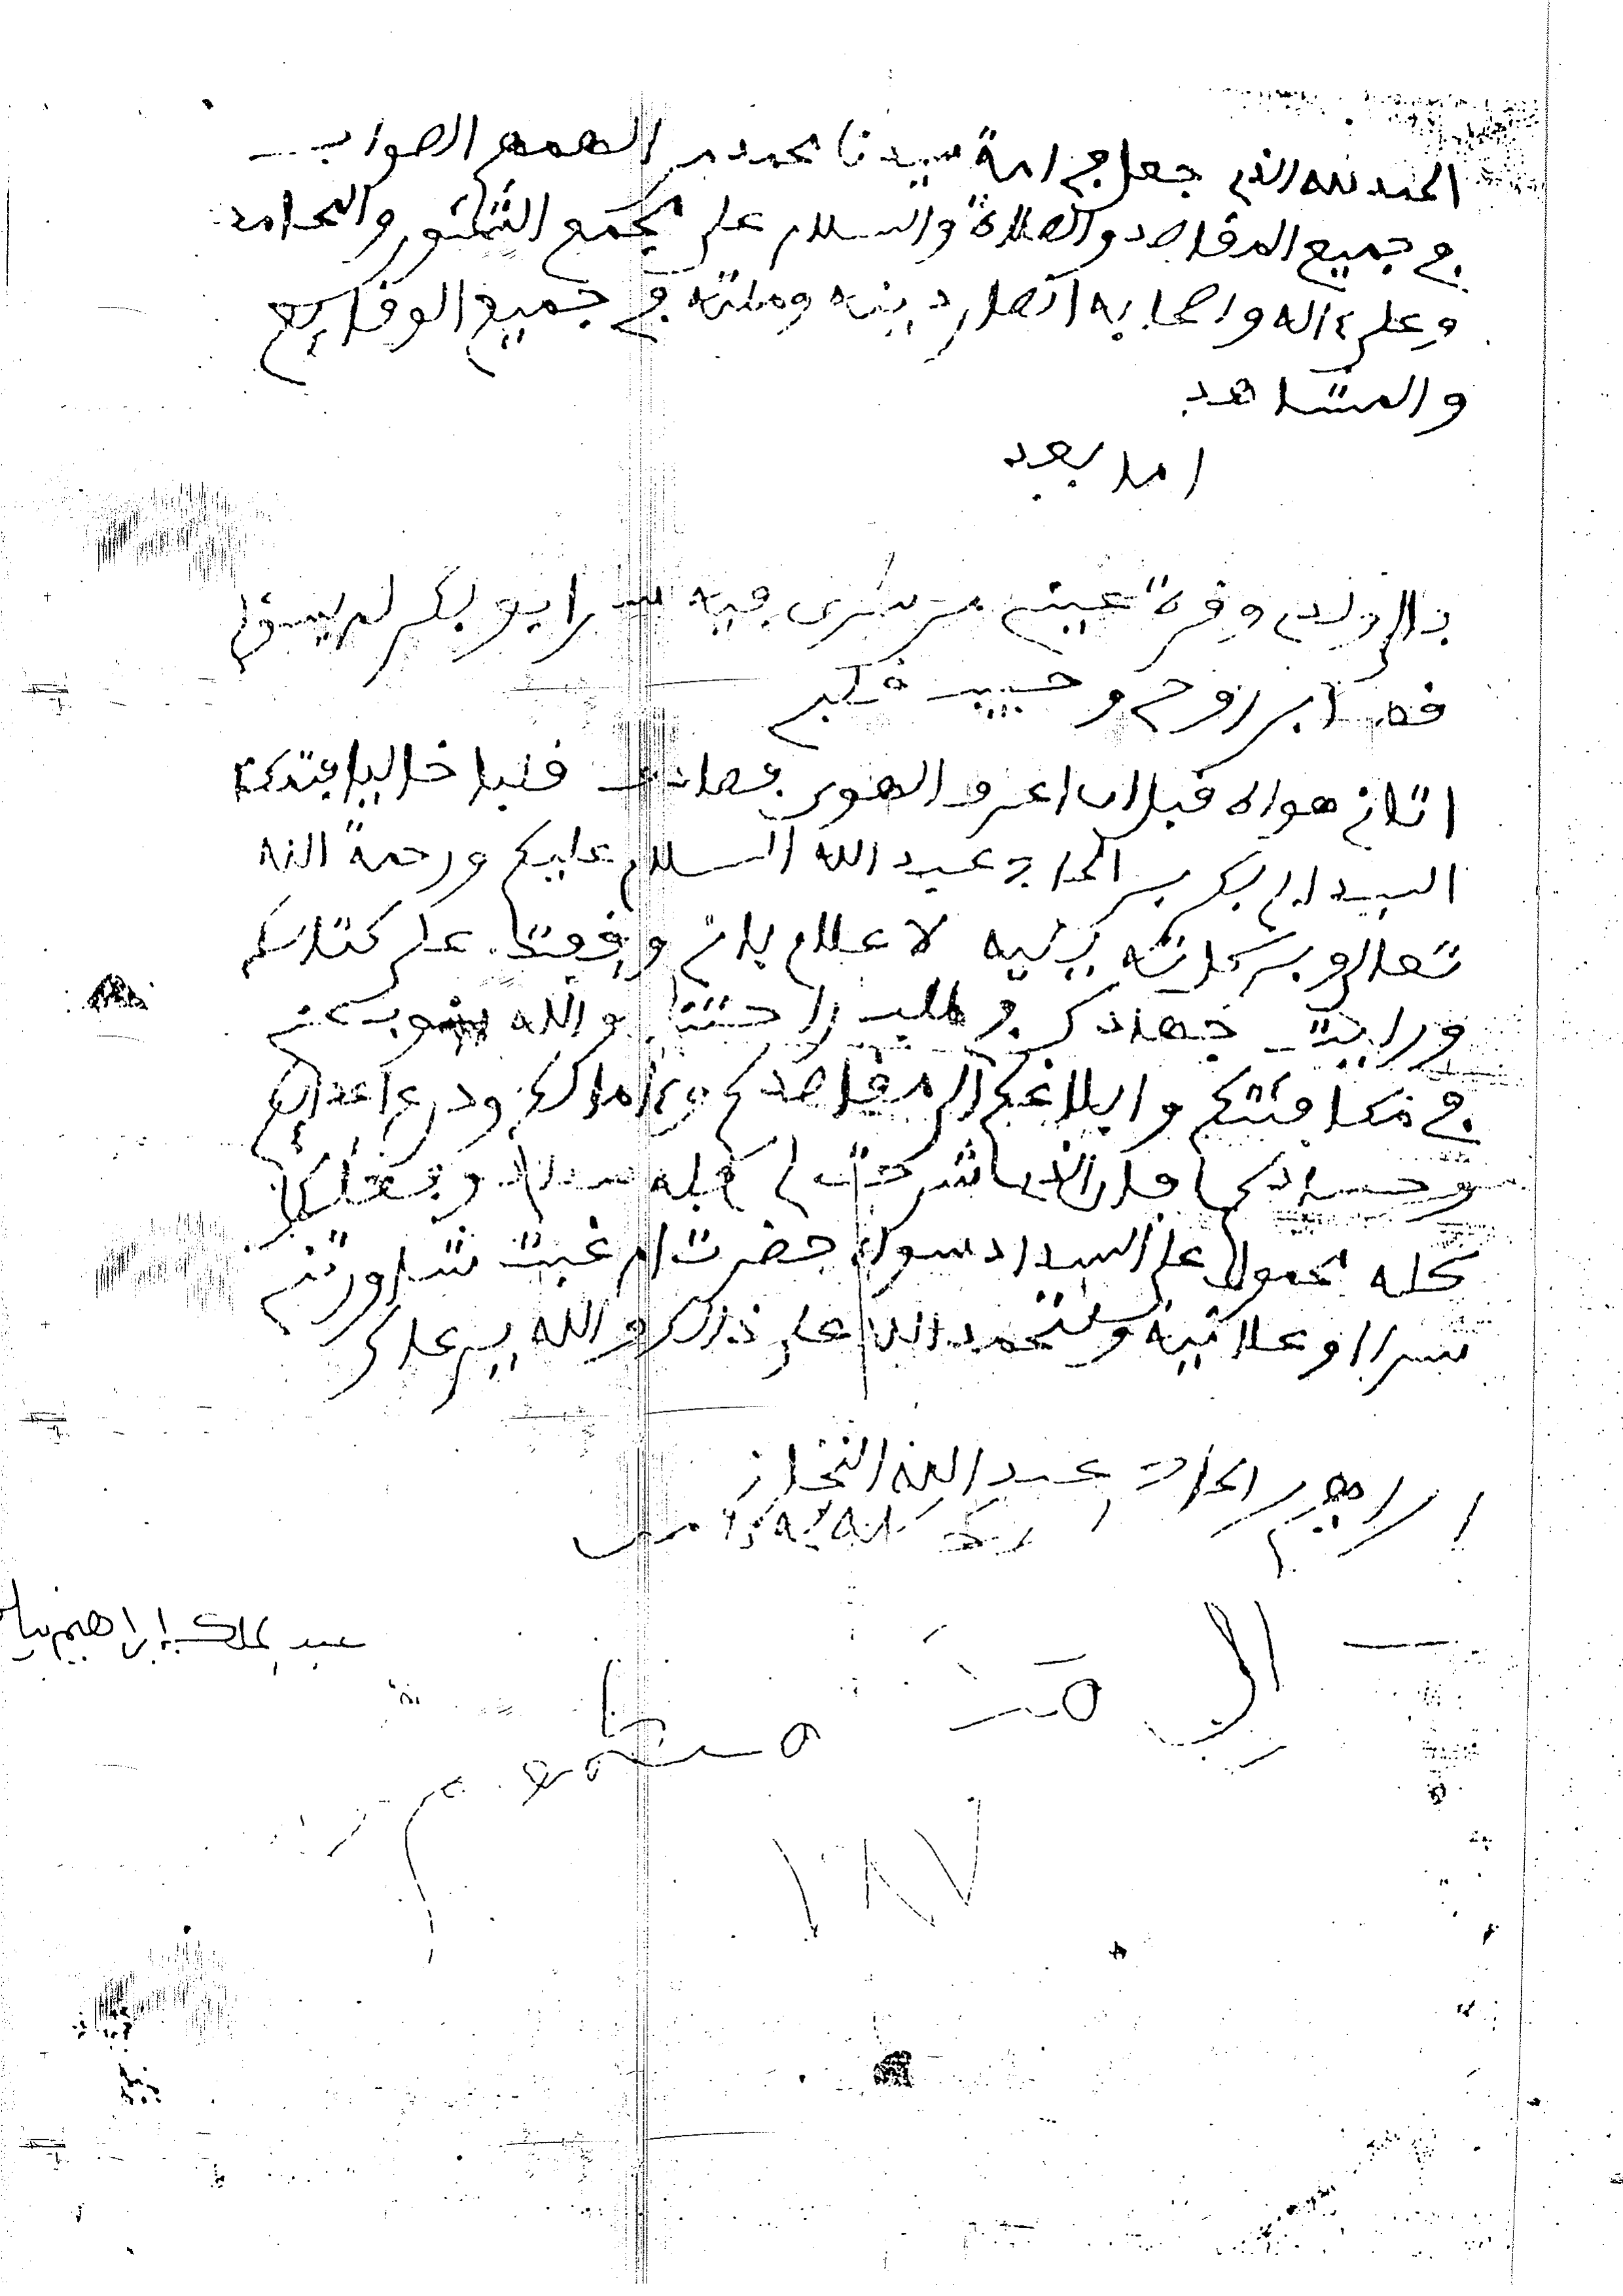 الحمد لله الذي جعل في امة سيدنا محمد من الهمهم الصواب
في جميع المقاصد والصلاة والسلام على مجمع الشكور والمحامد
وعلى ءاله واصحابه انصار دينه وملته في جميع الوقايع
والمشاهد
اما بعد
وقرة عيني من سرى فيه سر ابو بكر
ابن روحي وحبيب قلبي
اتاني هواه قبل ان اعرف الهوى فصادف قلبا خاليا فتمكنا
السيد ابي بكر بن الحاج عبد الله السلام عليكم ورحمة الله
تعالى وبركاته لا علام باني وافقت على كتابكم
ورايت جهادكم وطلب راحتنا والله ينوب عني
في مكافئتكم وابلاغكم الى مقاصدكم وءامالكم ودرء اعدائكم
وحسادكم فان الذي شرحت لي كله
كله محمولا على السداد سواء حضرت ام غبت شاورتني
سرا او علانية ونحمد الله على ذالك والله يرعاك
ابراهيم الحاج عبد الله التجاني
عبد الملك إبراهيم نياس
١٨٧